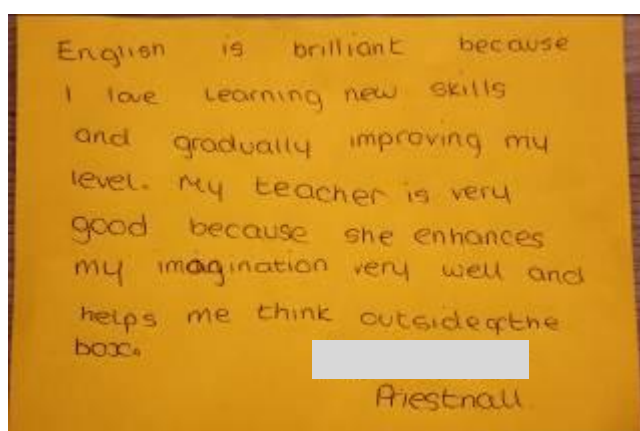 English is brilliant because
I love learning new skills
and gradually improving my
level. My teacher is very
good because she enhances
my imagination very well and
helps me think outside of the
box.
Priestnall